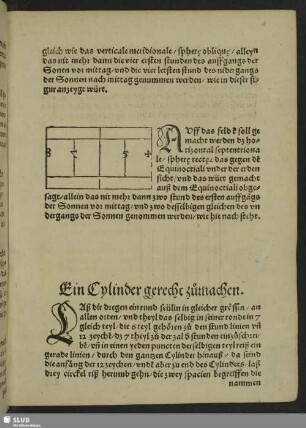 gleich wie das verticale meridionale / spherę obliquę / alleyn
das nit mehr dann die vier ersten stunden des auffgangs der
Sonen vor mittag / vnd die vier letsten stund des nidergangs
der Sonnen nach mittag genummen werden / wie in dieser fi
gur anzeygt würt.
8 7 5 4
AVff das feld k soll ge
macht werden dz ho
rizontal septentriona
le / spherę rectę / das gegen dē
Equinoctiali vnder der erden
sicht / vnd das würt gemacht
auß dem Equinoctiali obge
sagt / allein das nit mehr dann zwo stund des ersten auffgāgs
der Sonnen vor mittag / vnd zwo desselbigen gleichen des vn
dergangs der Sonnen genommen werden / wie hie nach steht.
Ein Cylinder gerecht zůmachen.
LAß dir dregen ein rund seüllin in gleicher grössen / an
allen orten / vnd theyl das selbig in seiner ronde in 7
gleich teyl / die 6 teyl gehören zů den stund linien vñ
12 zeychē / dz 7 theyl zů der zal d stunden einzůschrei
bē. vñ in einen yeden puncten der selbigen teyl reiß ein
gerade linien / durch den gantzen Cylinder hinauß / da seind
die anfāng der 12 zeychen / vnd aber zu end des Cylinders / laß
drey circkel riß herumb gehn / die zwey spacien begreiffen die
nammen
SLUB